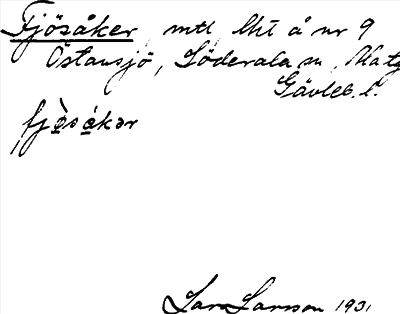 Fjösåker, mtl lht å nr 9
Östansjö, Söderala sn,
Gävleb. l.
fjòsákər
Lars Larsson 1931